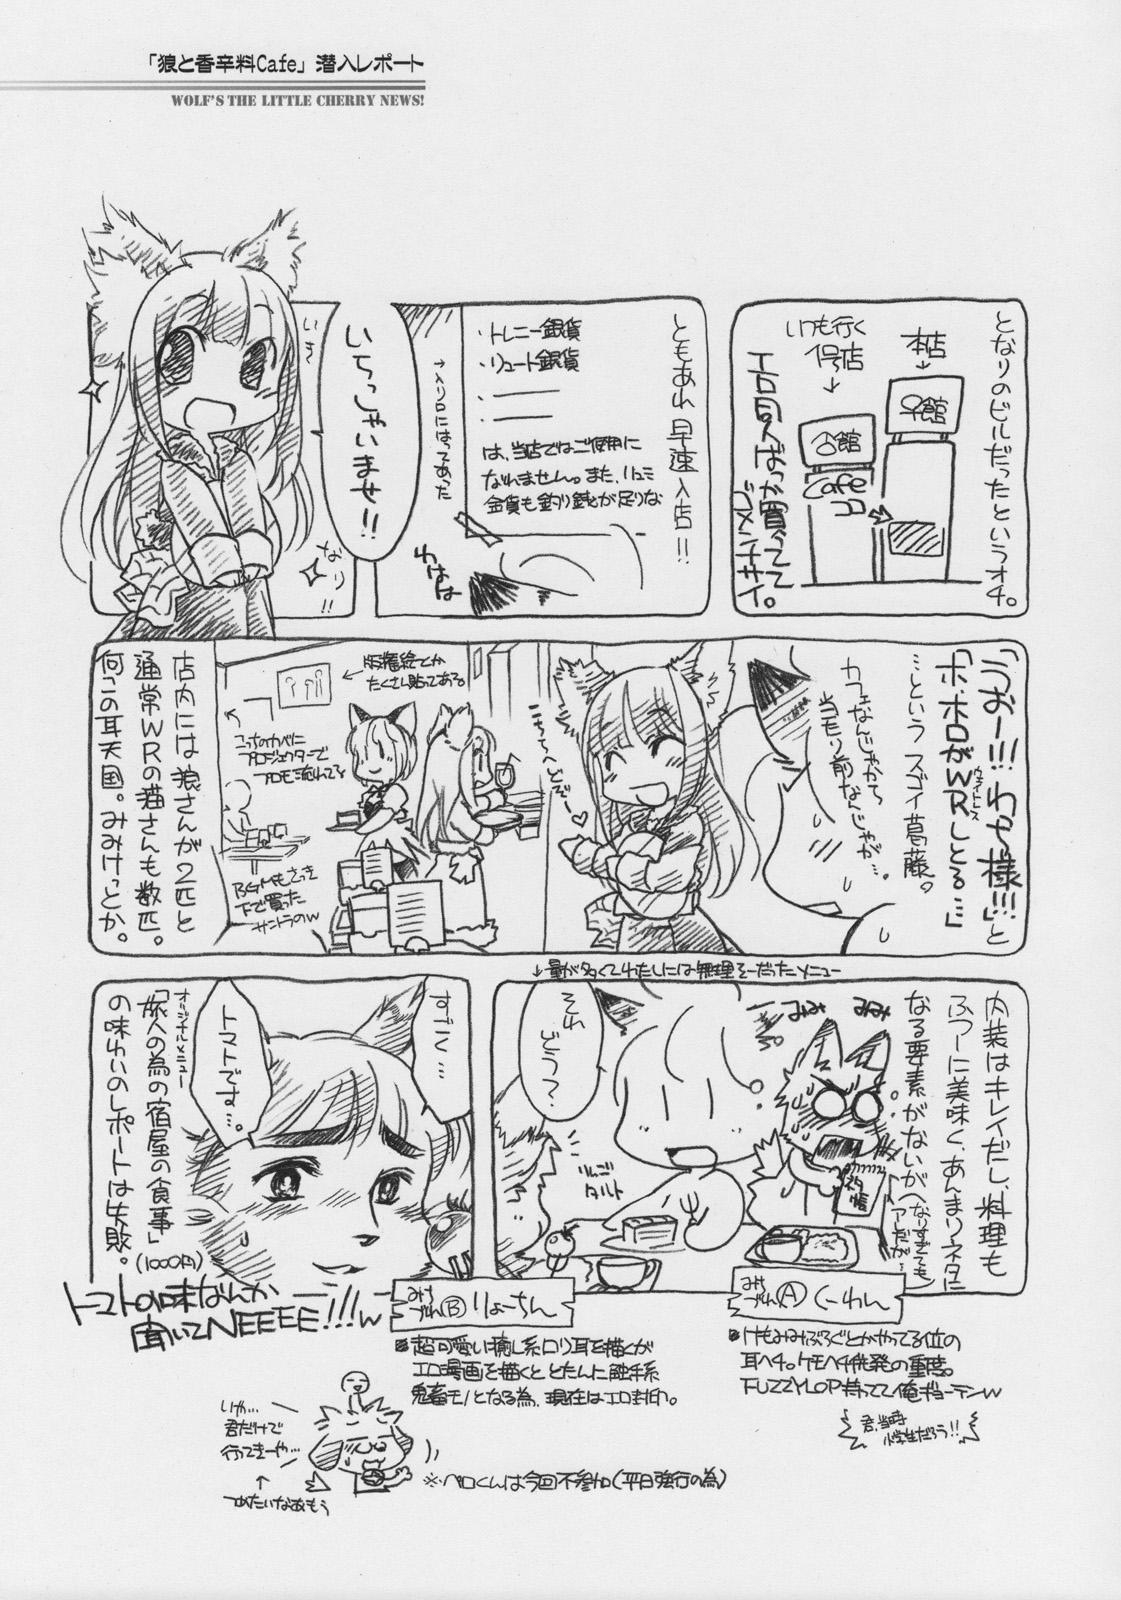 「狼と香辛料Cafe」潜入レポート
WOLF'S THE LITTLE CHERRY NEWS!
となりのビルだったというオチ。
本店
↓
いつも行く
1号店
↓
Cafe
ココ
エロ同人ばっか買ってて
ゴメンナサイ。
ともあれ早速入店!!
・トレニー銀貨
・リュート銀貨
は、当店ではご使用に
なれません。また、リュミ
金貨も釣り銭が足りな
→入り口にはってあった
わはは
いらっしゃいませ!!
いき
なり!!
「うおー!!!わっち様!!!」と
「ホ、ホロがWRしとる…」
ウェイトレス
…というスゴイ葛藤。
カフェなんじゃから
当たり前なんじゃが…。
こちらへどぞー♡
←版権絵とか
たくさん貼ってある。
こっちのカベに
プロジェクターで
プロモ流れてる
BGMもさっき
下で買った
サントラのw
店内には狼さんが2匹と
通常WRの猫さんも数匹。
何この耳天国。みみけっとか。
↓量が多くてわたしには無理そーだったメニュー
内装はキレイだし、料理も
ふつーに美味く、あんまりネタに
なる要素がないが(なりすぎても
アレだが…)
みみ
みみ
ネタ帳
それ
どう?
りんご
タルト
すごく…
トマトです…。
オリジナルメニュー
「旅人の為の宿屋の食事」
(1000円)
の味わいのレポートは失敗。
トマトの味なんか
聞いてNEEEE!!!w
みけ
づれ
Ⓐ
くーわん
けもみみぶろぐとかやってる位の
耳ヘチ。ケモヘチ併発の重度。
FUZZYLOP持ってて俺ギョーテンw
君、当時
小学生だろう!!
みけ
づれ
Ⓑ
りょーちん
超可愛い癒し系ロリ耳を描くが
エロ漫画を描くととたんに触手系
鬼畜モノとなる為、現在はエロ封印。
いや…
君だけで
行ってきーや…
↑
つめたいなあもう
※ベロくんは今回不参加(平日強行の為)